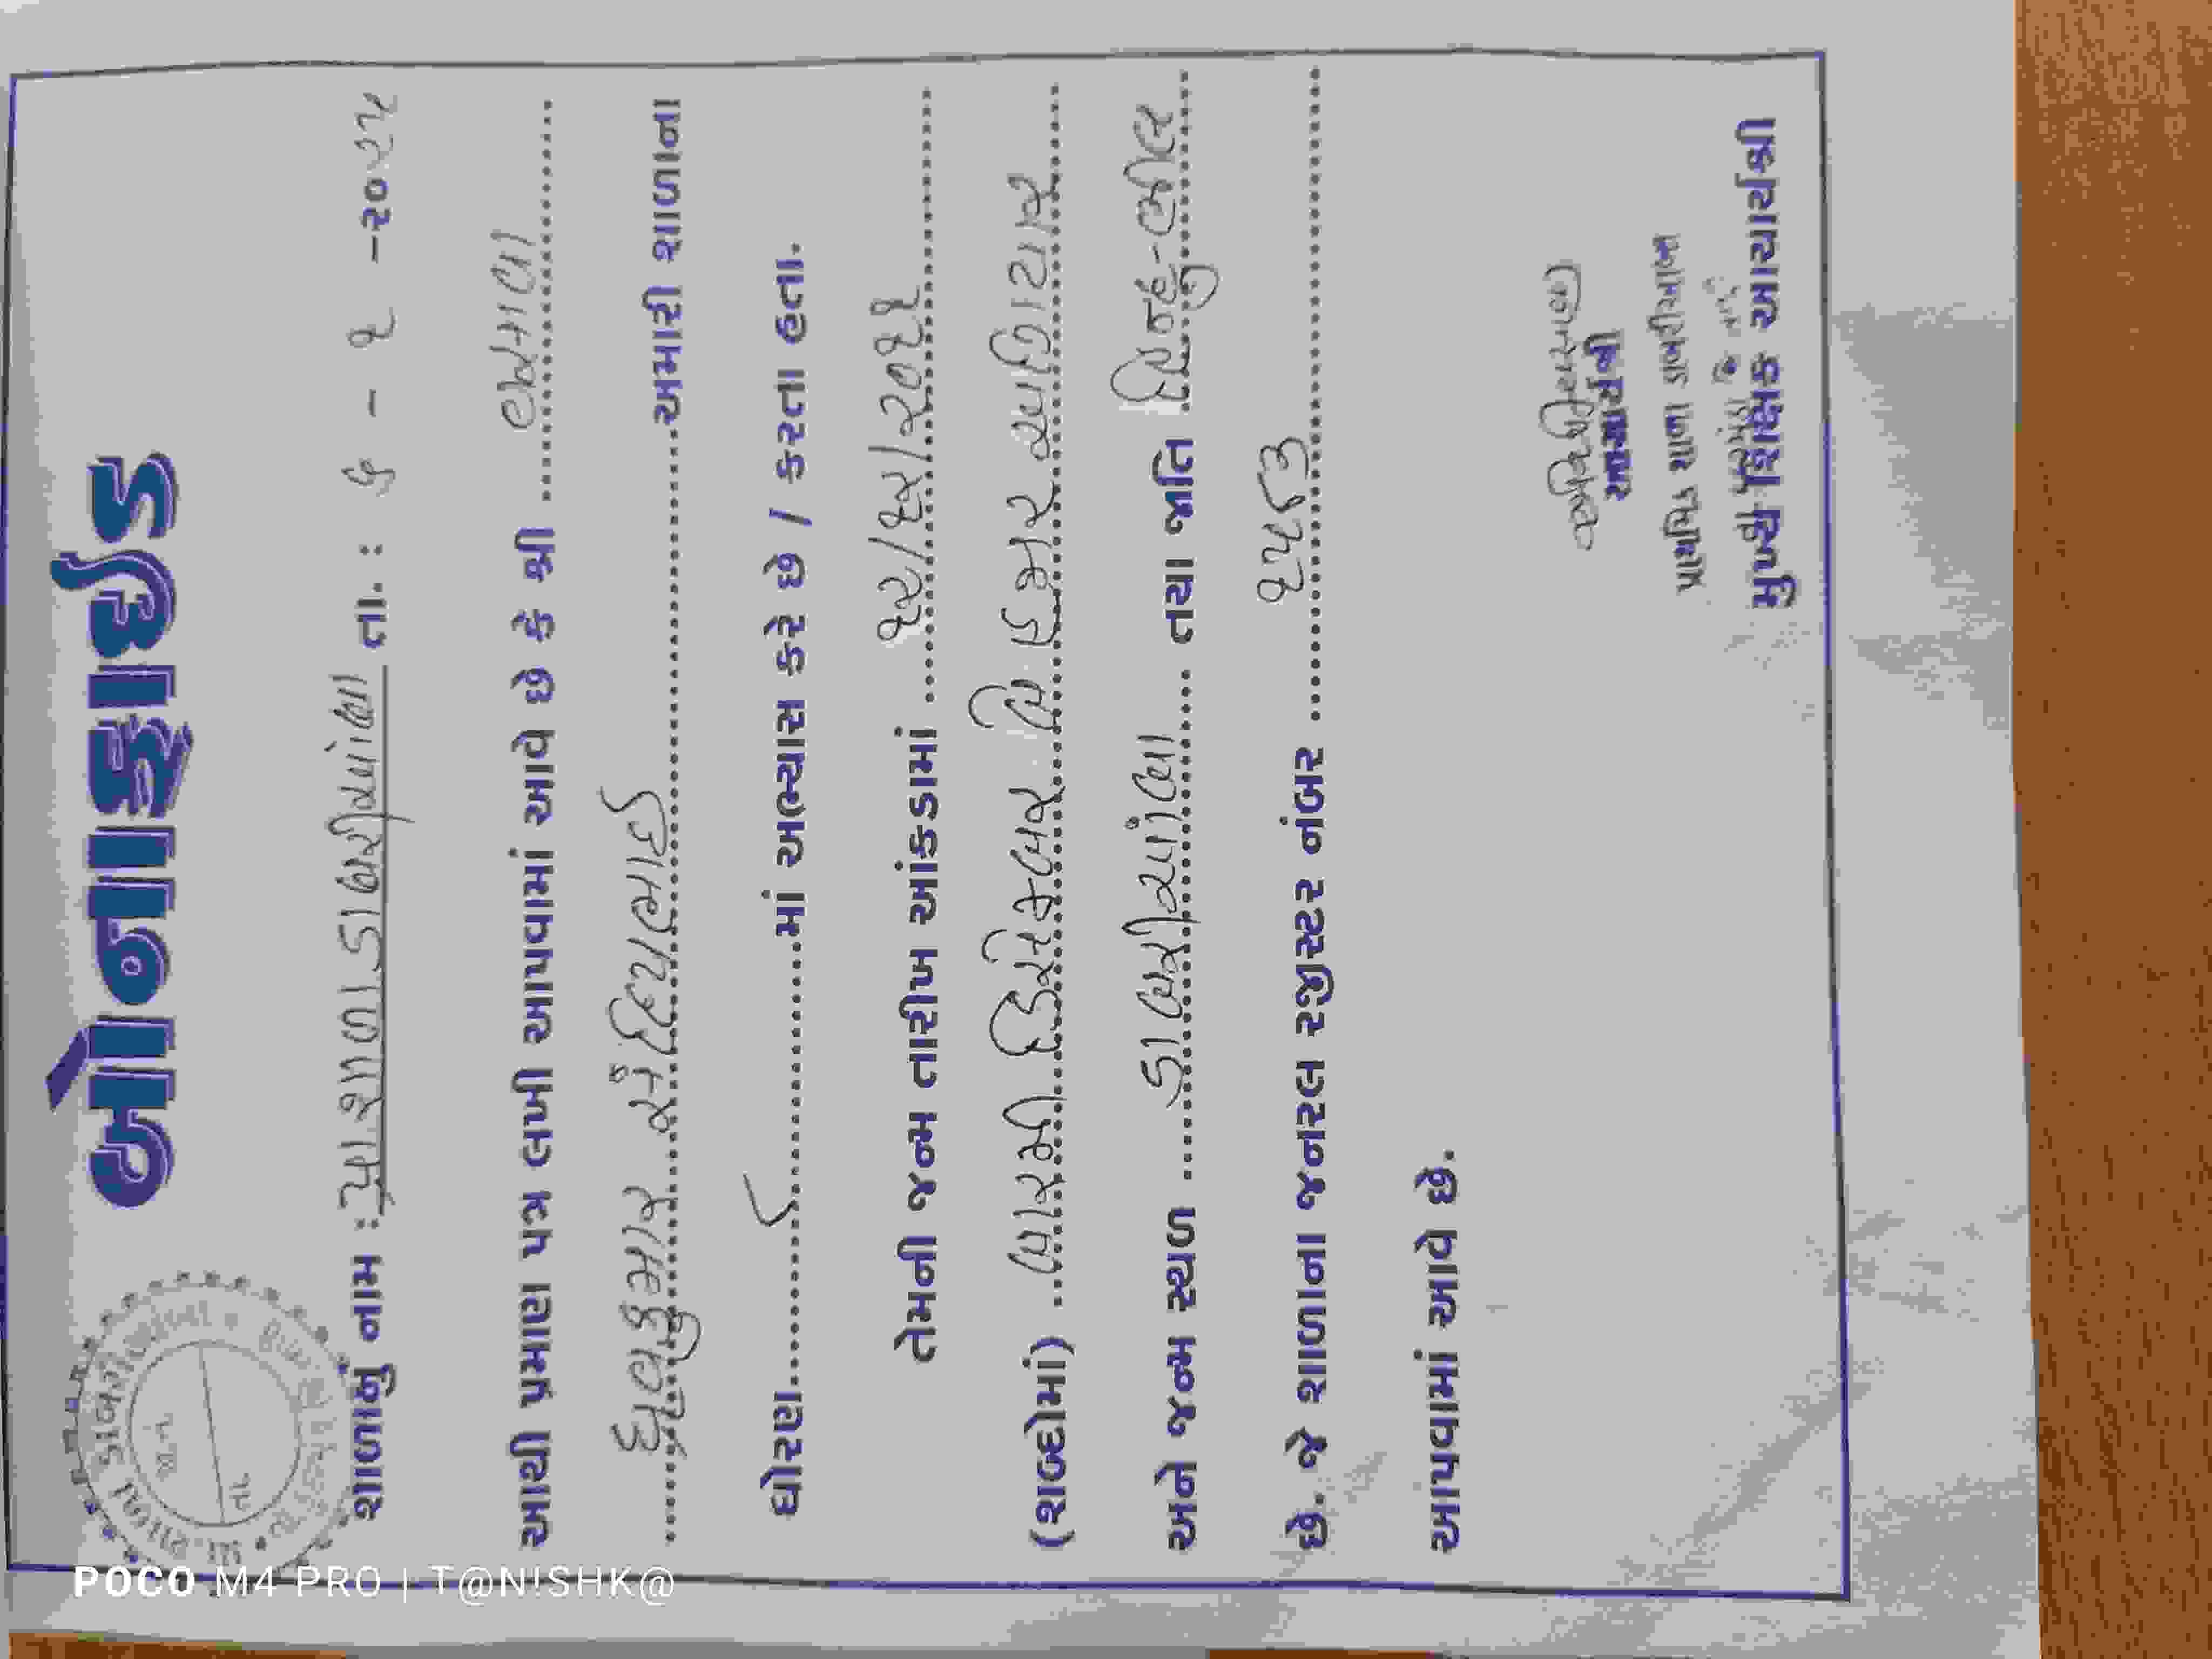 બોનાફાઈડ
શાળાનું નામ : પ્રા શાળા ડાબરીયાંબા તા. : ૬ - ૧ -૨૦૨૫
આથી પ્રમાણ પત્ર લખી આપવામાં આવે છે કે શ્રી
ધ્રુવકુમાર સંદિપભાઈ અમારી શાળાના
ધોરણ માં અભ્યાસ કરે છે / કરતા હતા.
તેમની જન્મ તારીખ આંકડામાં ૧૨/૧૨/૨૦૧૧
(શબ્દોમાં) બારમી ડિસેમ્બર બે હજાર અગિયાર
અને જન્મ સ્થળ ડાબરીયાંબા તથા જાતિ હિન્દુ-ભીલ
છે. જે શાળાના જનરલ રજીસ્ટર નંબર ૧૫૮૩
આપવામાં આવે છે.
આચાર્યશ્રી
પ્રાથમિક શાળા ડાબરીઆંબા
મુખ્ય શિક્ષક આચાર્યશ્રી
POCO M4 PRO | T@N!SHK@